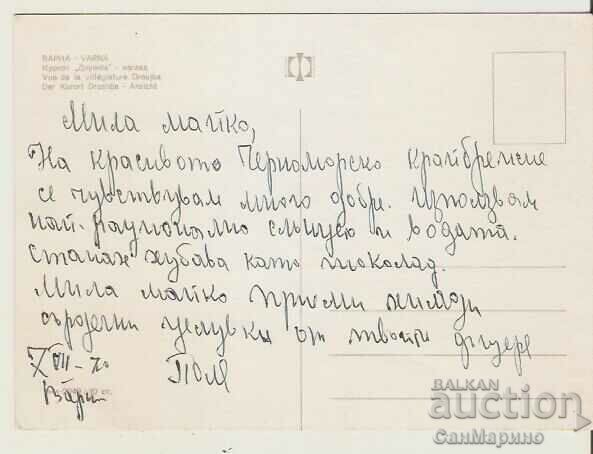 ВАРНА - VARNA
Курорт „Дружба" - изглед
Vue de la villégiature Droujba
Der Kurort Drushba - Ansicht
Мила майко,
На красивото Черноморско крайбрежие
се чувствувам много добре. Използвам
най-рационално слънцето и водата.
Станах хубава като шоколад.
Мила майко приеми хиляди
сърдечни целувки от твоята дъщеря
Поля
BALKAN
auction
СанМарино